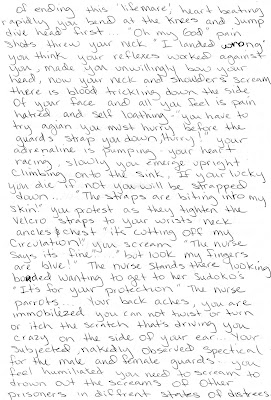 of ending this 'lifemare', heart beating
rapidly you bend at the knees and jump
dive head first... "Oh my God" pain
shots threw your neck "I landed wrong"
you think your reflexes worked against
you, made you unwillingly bow your
head, now your neck and shoulders scream
there is blood trickling down the side
Of your face and all you feel is pain
hatred and self loathing - "you have to
try agian you must hurry before the
guards strap you down, Hurry!" your
adrenaline is pumping, your heart
racing, slowly you emerge upright
Climbing onto the sink, If your lucky
you die if not you will be strapped
down... "The straps are biting into my
skin!" you protest as they tighten the
velcro straps to your wrists neck
ancles & chest "its cutting off my
Circulation!" you scream "The nurse
says its fine"... "but look my fingers
are blue!" The nurse stands there looking
bored wanting to get to her Sudokos
"Its for your protection" The nurse
parrots... Your back aches, you are
immobilized you can not twist or turn
or itch the scratch thats driving you
crazy on the side of your ear... Your
Subjected nakedly observed spectical
for the male and female guards - you
feel humiliated you need to scream to
drown out the screams of Other
prisoners in different states of distress